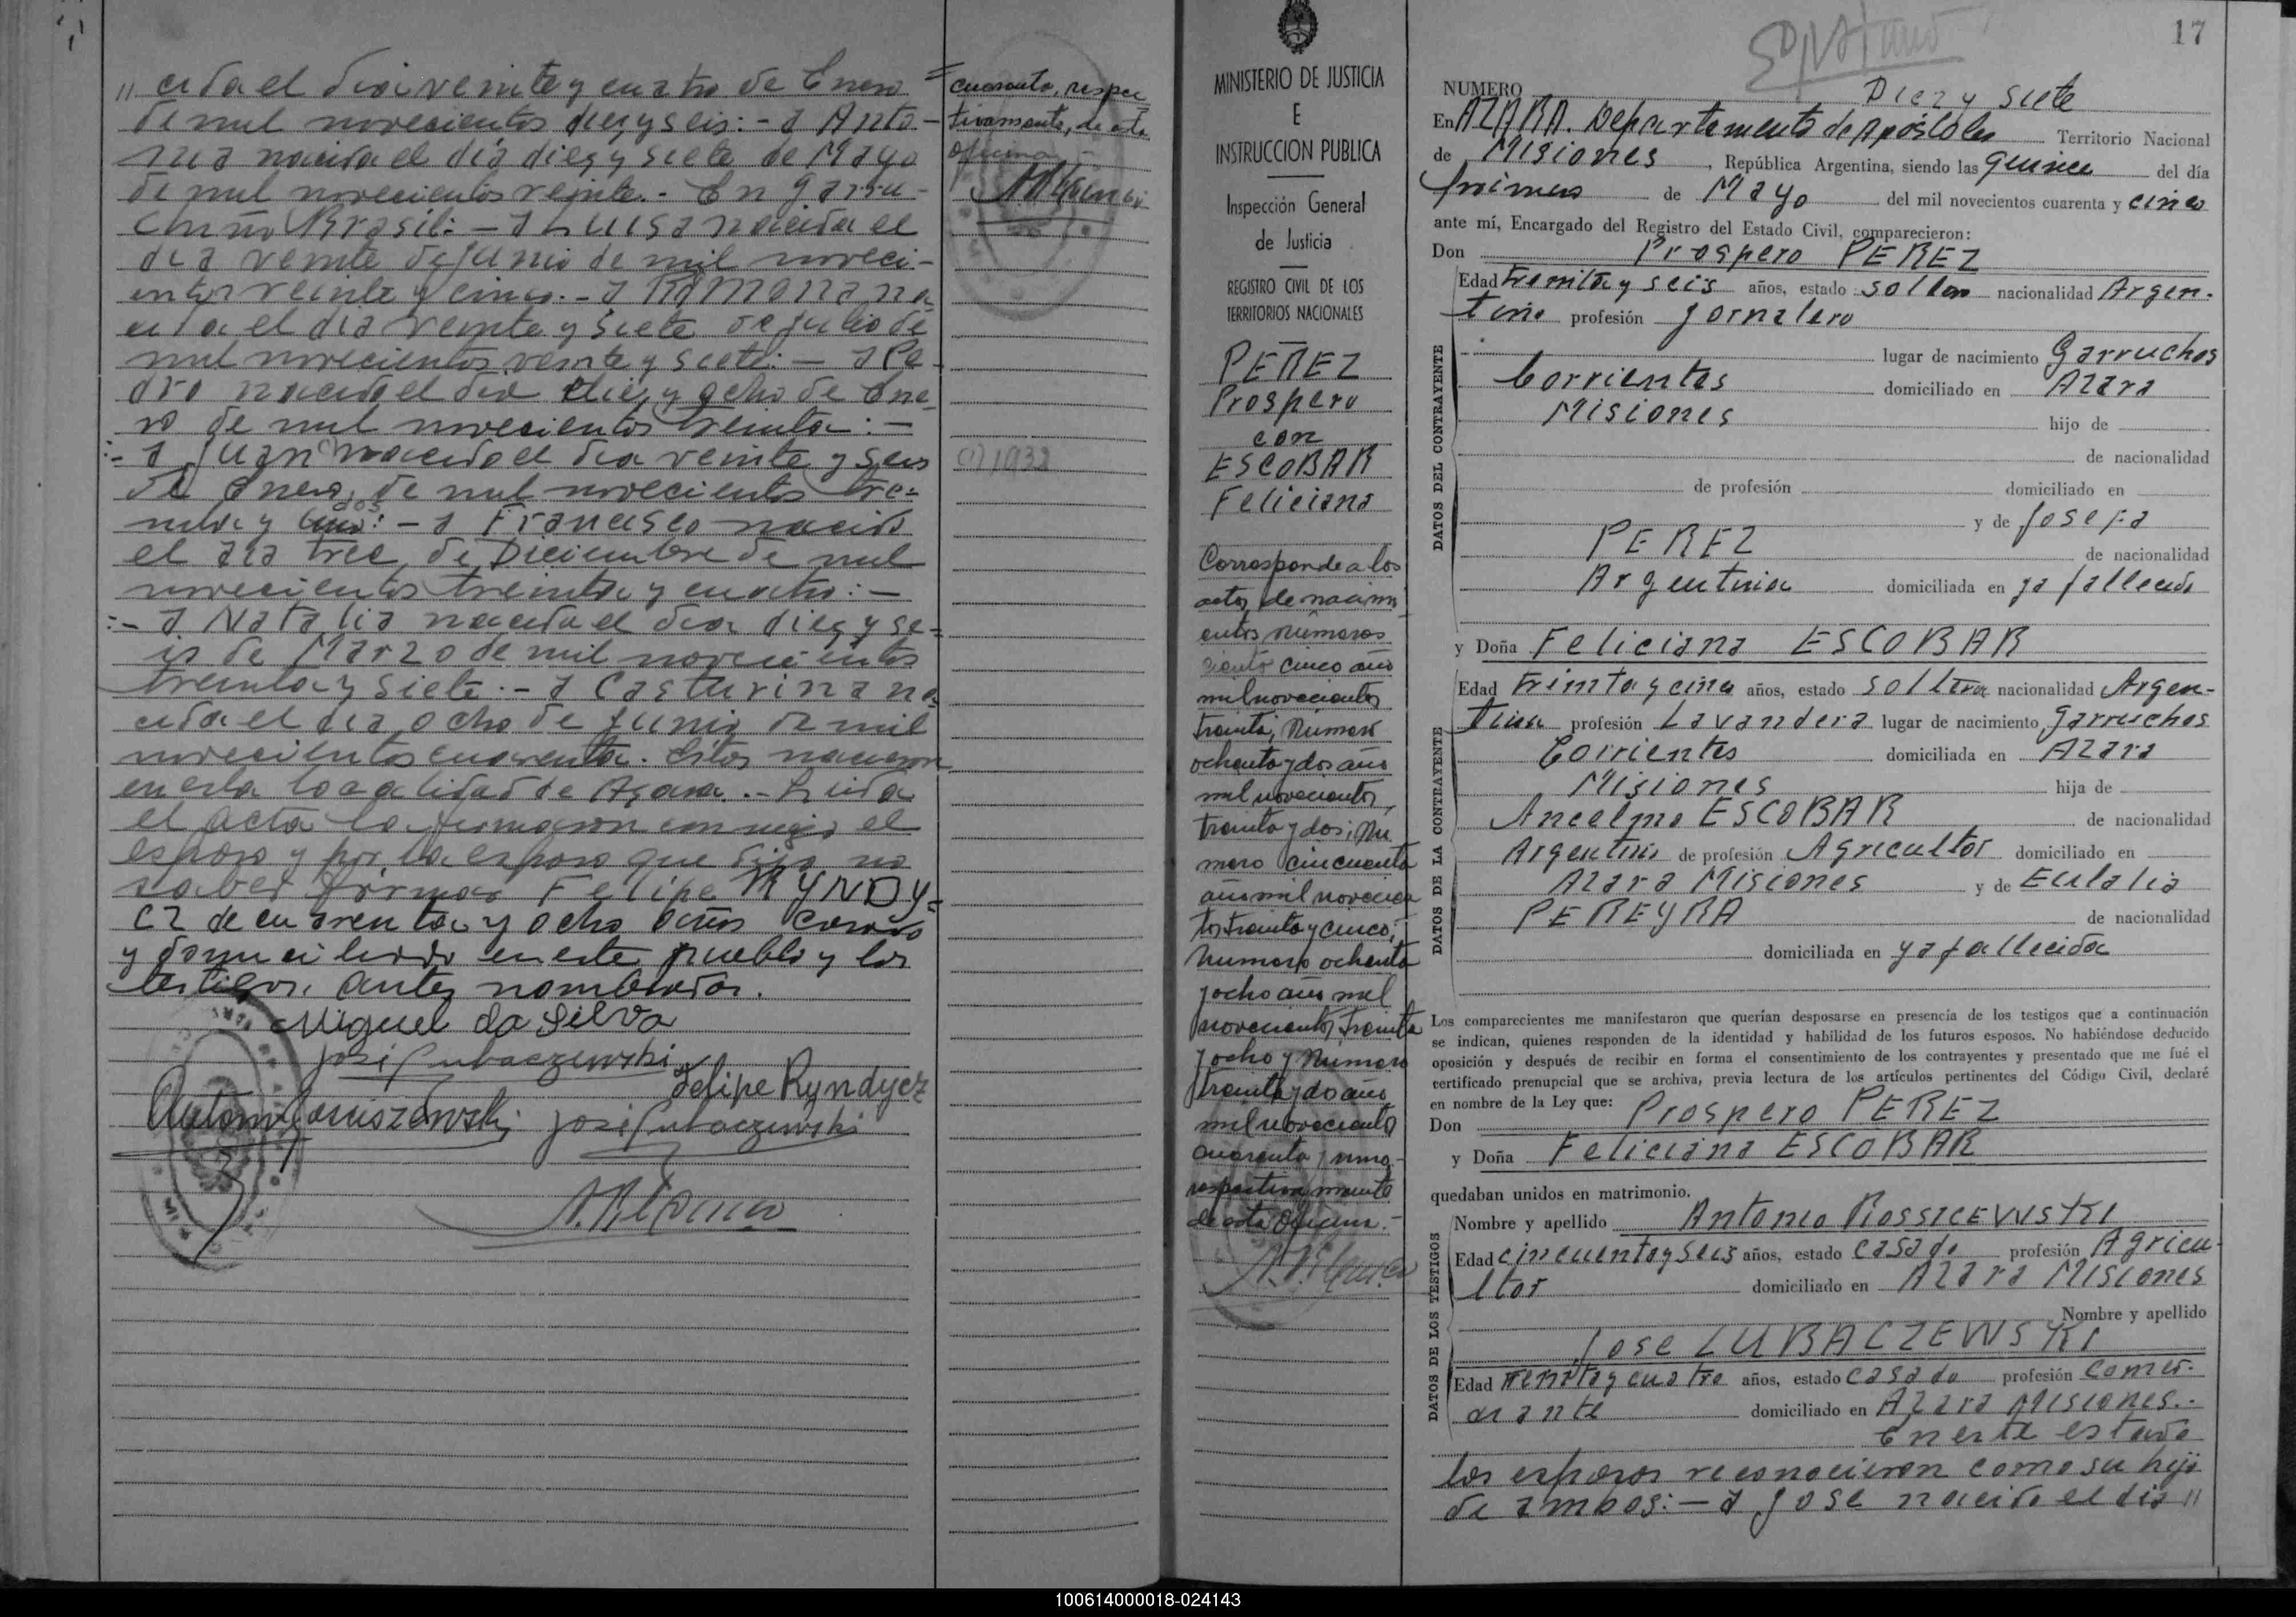 " cida el dia veinte y cuatro de Enero
de mil novecientos diez y seis:- a Anto-
nia nacida el día diez y siete de Mayo
de mil novecientos veinte.- En Garru-
chiño Brasil:- a Luisa nacida el
dia veinte de junio de mil noveci-
entos veinte y cinco.- a Ramona na
cida el dia veinte y siete de julio de
mil novecientos veinte y siete:- a Pe-
dro nacido el dia diez y ocho de Ene
ro de mil novecientos treinta:-
:- a Juan nacido el dia veinte y seis
de Enero, de mil novecientos tre=
inta y dos:- a Francisco nacido
el dia tres de Diciembre de mil
novecientos treinta y cuatro:-
:- a Natalia nacida el dia diez y se=
is de Marzo de mil novecientos
treinta y siete.- a Casturina na
cida el dia ocho de junio de mil
novecientos cuarenta. Estos nacieron
en esta localidad de Azara.- Leida
el acta la firmaron conmigo el
esposo y por la esposa que dijo no
saber firmar Felipe RYNDY=
CZ de cuarenta y ocho años casado
y domiciliado en este pueblo y los
testigos antes nombrados.
Miguel da Silva
José Lubaczewski
Felipe Ryndycz
José Lubaczewski
cuarenta, respec
tivamente, de esta
oficina
(1) 1932
MINISTERIO DE JUSTICIA
E
INSTRUCCION PUBLICA
Inspección General
de Justicia
REGISTRO CIVIL DE LOS
TERRITORIOS NACIONALES
PEREZ
Prospero
con
ESCOBAR
Feliciana
Corresponde a los
actos de nacimi
entos números
ciento cinco año
mil novecientos
treinta; Número
ochenta y dos año
mil novecientos
treinta y dos; Nú
mero cincuenta
año mil novecien
tos treinta y cinco;
Número ochenta
y ocho año mil
novecientos treinta
y ocho y Número
treinta y dos año
mil novecientos
cuarenta y uno-
respectivamente
de esta Oficina.-
17
NUMERO Diez y siete
En AZARA. Departamento de Apóstoles Territorio Nacional
de Misiones, República Argentina, siendo las quince del día
primero de Mayo del mil novecientos cuarenta y cinco
ante mí, Encargado del Registro del Estado Civil, comparecieron:
Don Prospero PEREZ
DATOS DEL CONTRAYENTE
Edad treinta y seis años, estado soltero nacionalidad Argen-
tino profesión Jornalero
lugar de nacimiento Garruchos
Corrientes domiciliado en Azara
Misiones hijo de
de nacionalidad
de profesión domiciliado en
y de Josefa
PEREZ de nacionalidad
Argentina domiciliada en ya fallecida
y Doña Feliciana ESCOBAR
DATOS DE LA CONTRAYENTE
Edad treinta y cinco años, estado soltera nacionalidad Argen-
tina profesión Lavandera lugar de nacimiento Garruchos
Corrientes domiciliada en Azara
Misiones hija de
Ancelmo ESCOBAR de nacionalidad
Argentino de profesión Agricultor domiciliado en
Azara Misiones y de Eulalia
PEREYRA de nacionalidad
domiciliada en ya fallecida
Los comparecientes me manifestaron que querían desposarse en presencia de los testigos que a continuación
se indican, quienes responden de la identidad y habilidad de los futuros esposos. No habiéndose deducido
oposición y después de recibir en forma el consentimiento de los contrayentes y presentado que me fué el
certificado prenupcial que se archiva, previa lectura de los artículos pertinentes del Código Civil, declaré
en nombre de la Ley que:
Don Prospero PEREZ
y Doña Feliciana ESCOBAR
quedaban unidos en matrimonio.
DATOS DE LOS TESTIGOS
Nombre y apellido Antonio ROSSICEWSKI
Edad cincuenta y seis años, estado casado profesión Agricu-
ltor domiciliado en Azara Misiones
Nombre y apellido
Jose LUBACZEWSKI
Edad treinta y cuatro años, estado casado profesión Comer-
ciante domiciliado en Azara Misiones.-
En este estado
los esposos reconocieron como su hijo
de ambos:- a Jose nacido el dia "
100614000018-024143